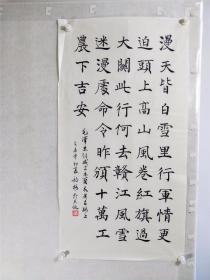 漫天皆白雪里行軍情更
迫頭上高山風卷紅旗過
大關此行何去贛江風雪
迷漫處命令昨頒十萬工
農下吉安
毛澤東詞減字木蘭花廣昌路上